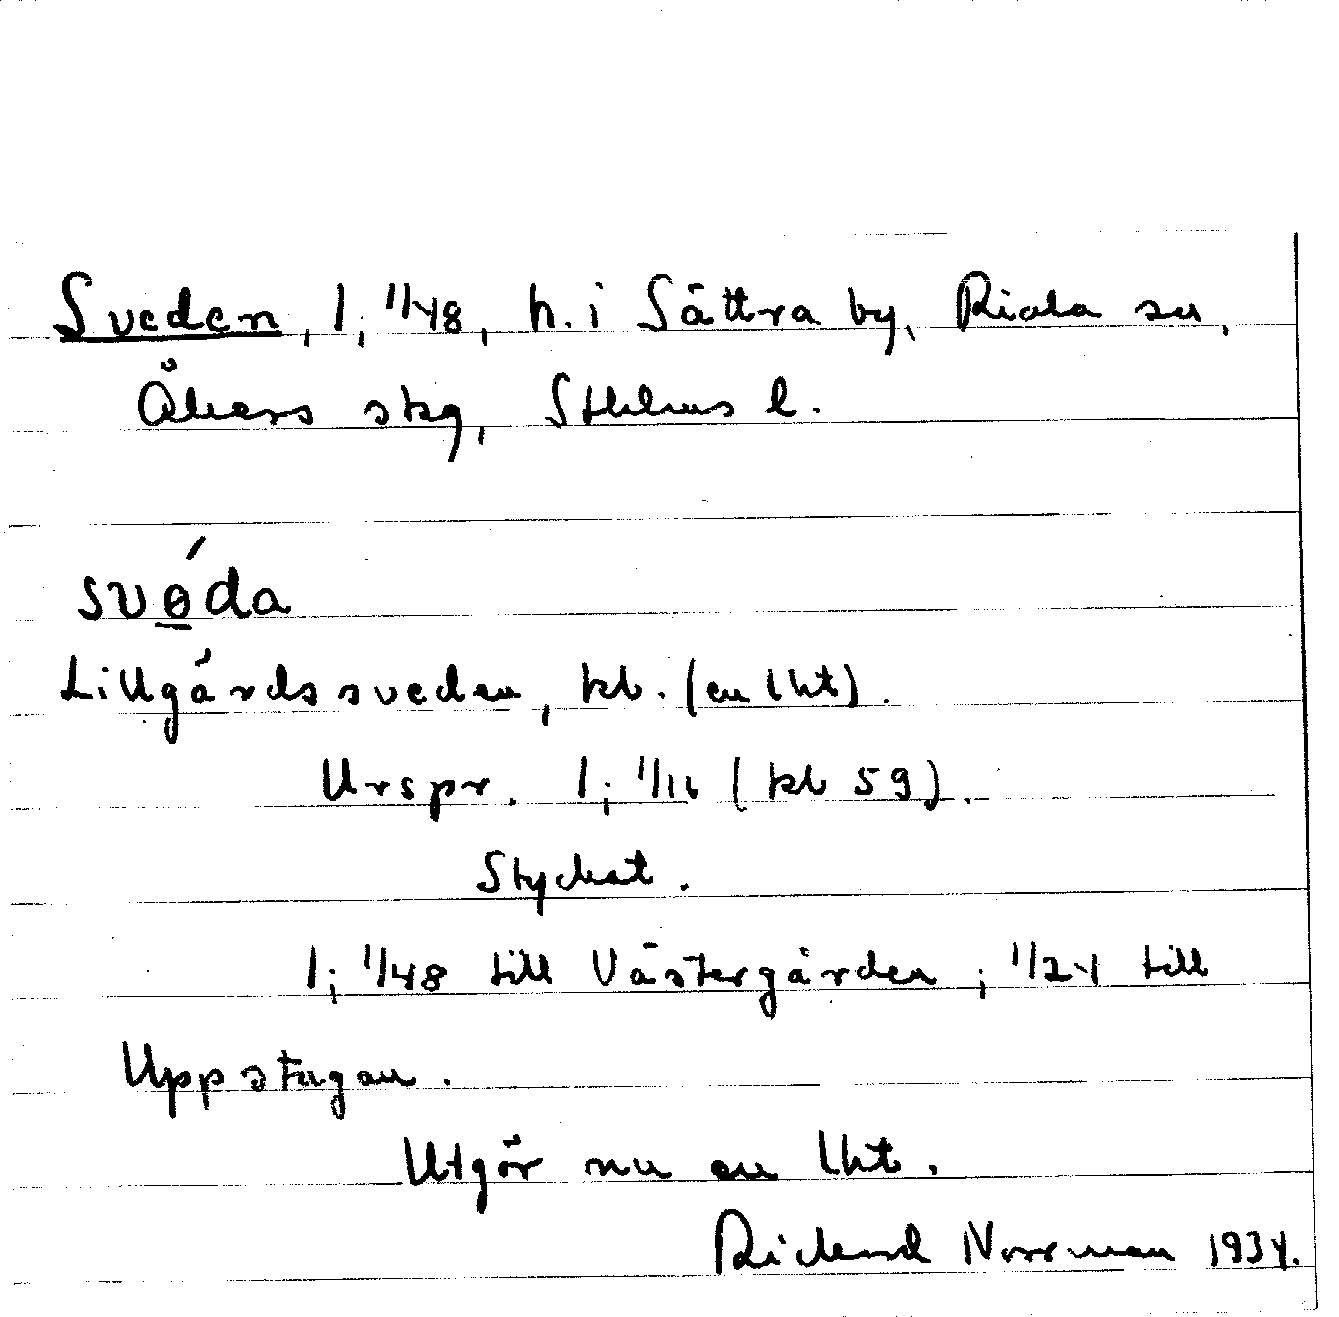 Sveden, 1; 1/48, h. i Sättra by, Riala sn,
Åkers skg, Sthlms l.
svǿda
Lillgårdssveden, kb. (en lht).
Urspr. 1; 1/16 (kb 59).
Styckat.
1; 1/48 till Västergården; 1/24 till
Uppstugan.
Utgör nu en lht.
Rickard Norrman 1934.